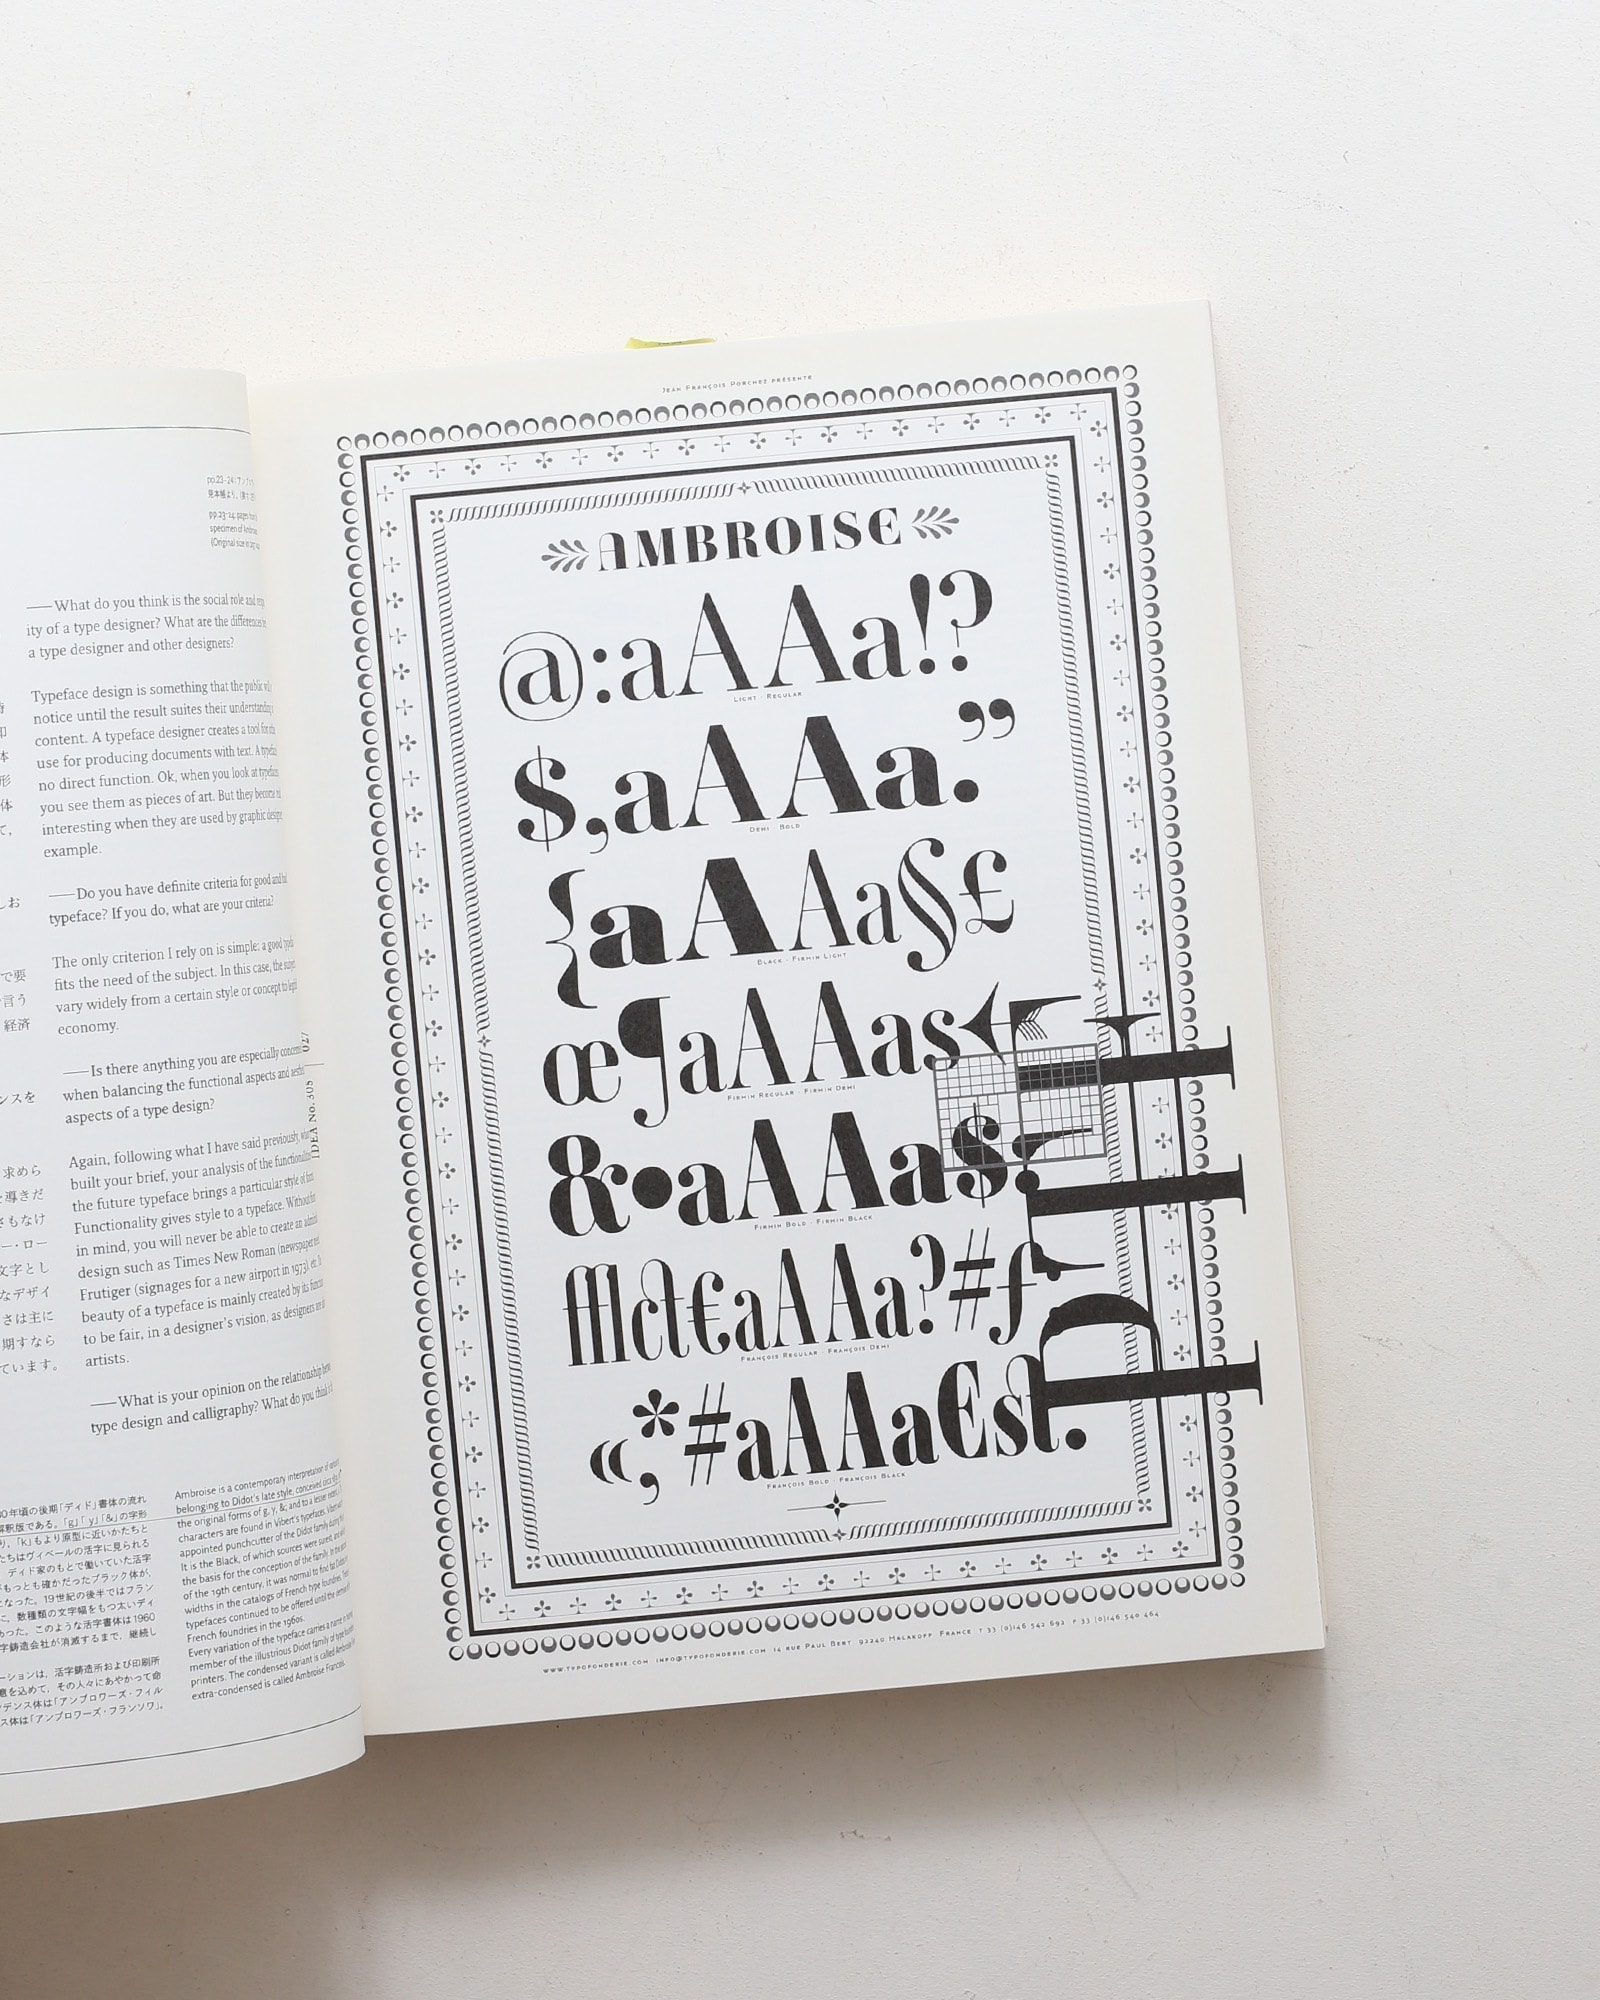 pp.23-24:アンブ
見本帳より。
pp.23-24: pages from
specimen of Ambroise
(Original size
——What do you think is the social role and
ity of a type designer? What are the differences
a type designer and other designers?
Typeface design is something that the public
notice until the result suites their understanding
content. A typeface designer creates a tool for
use for producing documents with text. A
no direct function. Ok, when you look at
you see them as pieces of art. But they become
interesting when they are used by graphic
example.
——Do you have definite criteria for good and
typeface? If you do, what are your criteria?
The only criterion I rely on is simple: a good
fits the need of the subject. In this case, the
vary widely from a certain style or concept to
economy.
——Is there anything you are especially
when balancing the functional aspects and
aspects of a type design?
Again, following what I have said previously,
built your brief, your analysis of the
the future typeface brings a particular style of
Functionality gives style to a typeface. Without
in mind, you will never be able to create an
design such as Times New Roman (newspaper
Frutiger (signages for a new airport in 1973), etc.
beauty of a typeface is mainly created by its
to be fair, in a designer's vision, as designers are
artists.
——What is your opinion on the relationship
type design and calligraphy? What do you think
で要
言う
経済
ンスを
求めら
導きだ
さもなけ
ー・ロー
文字とし
なデザイ
さは主に
期すなら
ています。
0年頃の後期「ディド」書体の流れ
解釈版である。「g」「y」「&」の字形
り、「k」もより原型に近いかたちと
たちはヴィベールの活字に見られる
ディド家のもとで働いていた活字
がもっとも確かだったブラック体が、
なった。19世紀の後半ではフラン
に、数種類の文字幅をもつ太いディ
あった。このような活字書体は1960
字鋳造会社が消滅するまで、継続し
ーションは、活字鋳造所および印刷所
意を込めて、その人々にあやかって命
デンス体は「アンブロワーズ・フィル
ス体は「アンブロワーズ・フランソワ」。
Ambroise is a contemporary interpretation of
belonging to Didot's late style, conceived circa
the original forms of g, y, &; and to a lesser
characters are found in Vibert's typefaces. Vibert
appointed punchcutter of the Didot family during
It is the Black, of which sources were surest,
the basis for the conception of the family. In the
of the 19th century, it was normal to find fat Didots in
widths in the catalogs of French type foundries.
typefaces continued to be offered until the
French foundries in the 1960s.
Every variation of the typeface carries a name in
member of the illustrious Didot family of type
printers. The condensed variant is called Ambroise
extra-condensed is called Ambroise François.
IDEA No. 308
027
Jean François Porchez présente
AMBROISE
@:aAAa!?
Light · Regular
$,aAAa.”
Demi · Bold
{aAAa§£
Black · Firmin Light
œ¶aAAas
Firmin Regular · Firmin Demi
&•aAAa$;
Firmin Bold · Firmin Black
fflct€aAAa?#ƒ
François Regular · François Demi
«,*#aAAa€st.
François Bold · François Black
www.typofonderie.com info@typofonderie.com 14 rue Paul Bert 92240 Malakoff France T 33 (0)146 542 692 F 33 (0)146 540 464